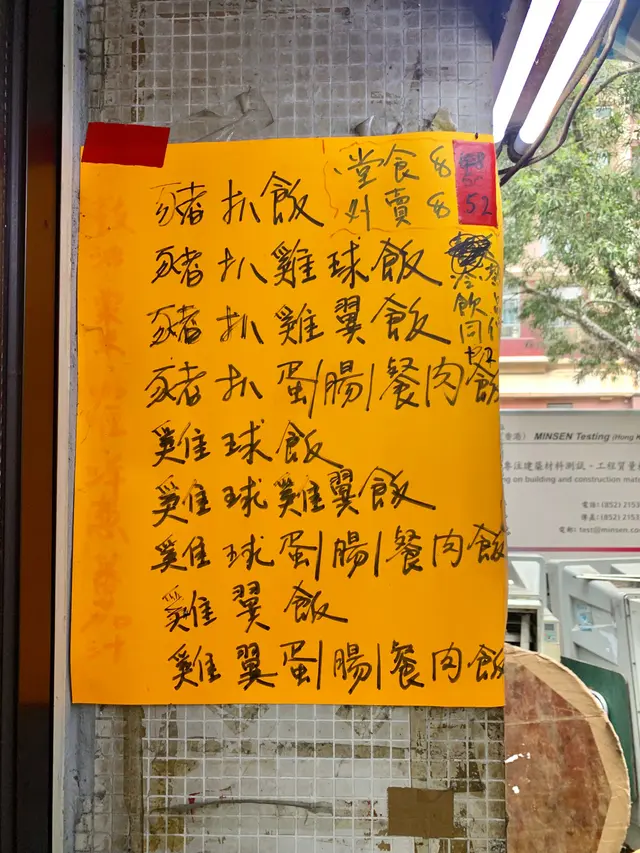 豬扒飯
堂食 $
外賣 $ 52
豬扒雞球飯
豬扒雞翼飯
豬扒蛋/腸/餐肉飯
雞球飯
雞球雞翼飯
雞球蛋/腸/餐肉飯
雞翼飯
雞翼蛋/腸/餐肉飯
冷飲同價
MINSEN Testing (Hong K
專注建築材料測試、工程質量
ng on building and construction mate
電話: (852) 2153
傳真: (852) 2153
電郵: test@minsen.co